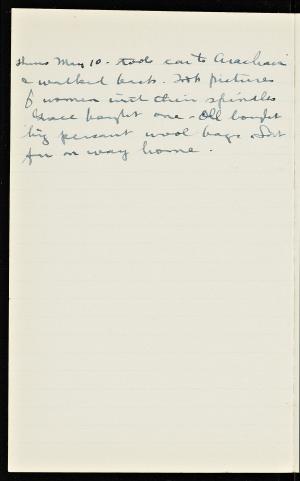 Thurs May 10 - took car to Arachair
& walked back. Took pictures
of women with their spindles
Grace bought one - all bought
big peasant wool bags. Lost
fur on way home.